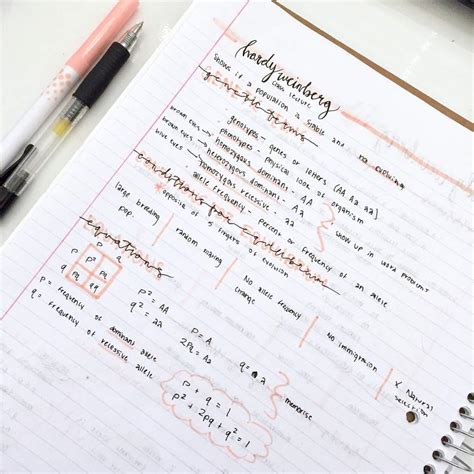 hardy weinberg
class lecture
shows if a population is stable and not evolving
genetic terms
genotypes - genes or letters [AA Aa aa]
phenotypes - physical look of organism
brown eyes → homozygous dominant - AA
brown eyes → heterozygous dominant - Aa
blue eyes → homozygous recessive - aa
allele frequency - percent or frequency of an allele
show up in word problems
conditions for equilibrium
* opposite of 5 fingers of evolution
large breeding pop.
random mating
No allele frequency change
No immigration
X Natural selection
equations
p q
p p² pq
q pq qq
p = frequency of dominant allele
q = frequency of recessive allele
p² = AA
q² = aa
p = A
2pq = Aa
q = a
p + q = 1
p² + 2pq + q² = 1
memorise